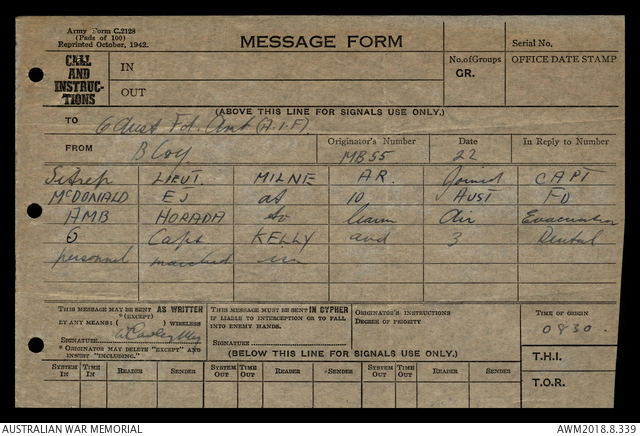 Army Form C.2128
(Pads of 100)
Reprinted October, 1942.
MESSAGE FORM
Serial No.
CALL AND INSTRUCTIONS
IN
OUT
No. of Groups
GR.
OFFICE DATE STAMP
(ABOVE THIS LINE FOR SIGNALS USE ONLY.)
TO 6 Aust Fd. Amb (A.I.F).
FROM B Coy
Originator's Number MB55
Date 22
In Reply to Number
Sitrep LIEUT. MILNE AR. joined CAPT
McDONALD EJ at 10 AUST FD
AMB HORADA to learn Air Evacuation
6 Capt KELLY and 3 Dental
personnel marched in
THIS MESSAGE MAY BE SENT AS WRITTEN
*(EXCEPT)
BY ANY MEANS: ( ) WIRELESS
SIGNATURE
* ORIGINATOR MAY DELETE "EXCEPT" AND
INSERT "INCLUDING."
THIS MESSAGE MUST BE SENT IN CYPHER
IF LIABLE TO INTERCEPTION OR TO FALL
INTO ENEMY HANDS.
SIGNATURE
ORIGINATOR'S INSTRUCTIONS
DEGREE OF PRIORITY
TIME OF ORIGIN
0830.
(BELOW THIS LINE FOR SIGNALS USE ONLY.)
T.H.I.
T.O.R.
SYSTEM IN TIME IN READER SENDER SYSTEM OUT TIME OUT READER SENDER SYSTEM OUT TIME OUT READER SENDER
AUSTRALIAN WAR MEMORIAL
AWM2018.8.339